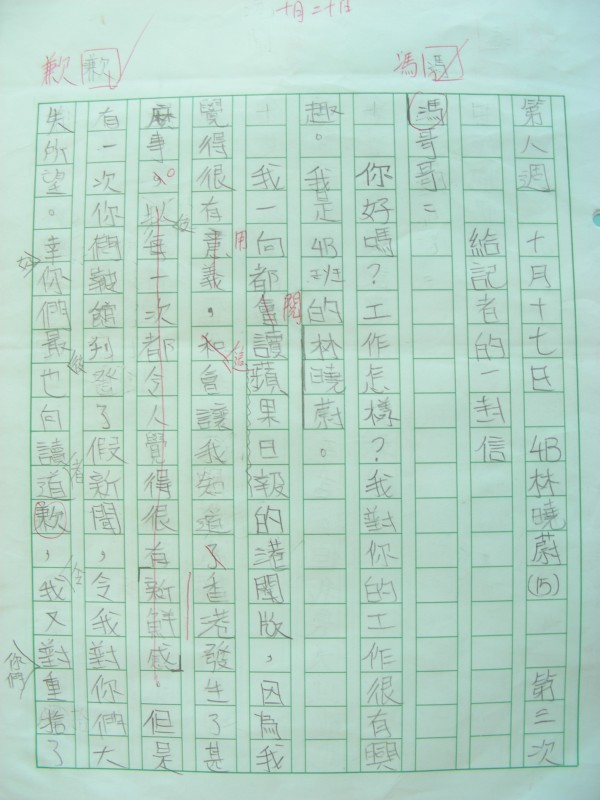 十月二十日
馮 馮
歉 歉
第八週 十月十七日 4B林曉蔚(15) 第三次
給記者的一封信
馮哥哥：
你好嗎？工作怎樣？我對你的工作很有興
趣。我是4B班的林曉蔚。
我一向都會讀蘋果日報的港聞版，因為我
閱
覺得很有意義，和會讓我知道了香港發生了甚
麼事，以每一次都令人覺得很有「新鮮感」。但是
有一次你們報館刋登了假新聞，令我對你們大
失所望。幸你們最也向讀道歉，我又對重拾了
好
後
者
令
你們